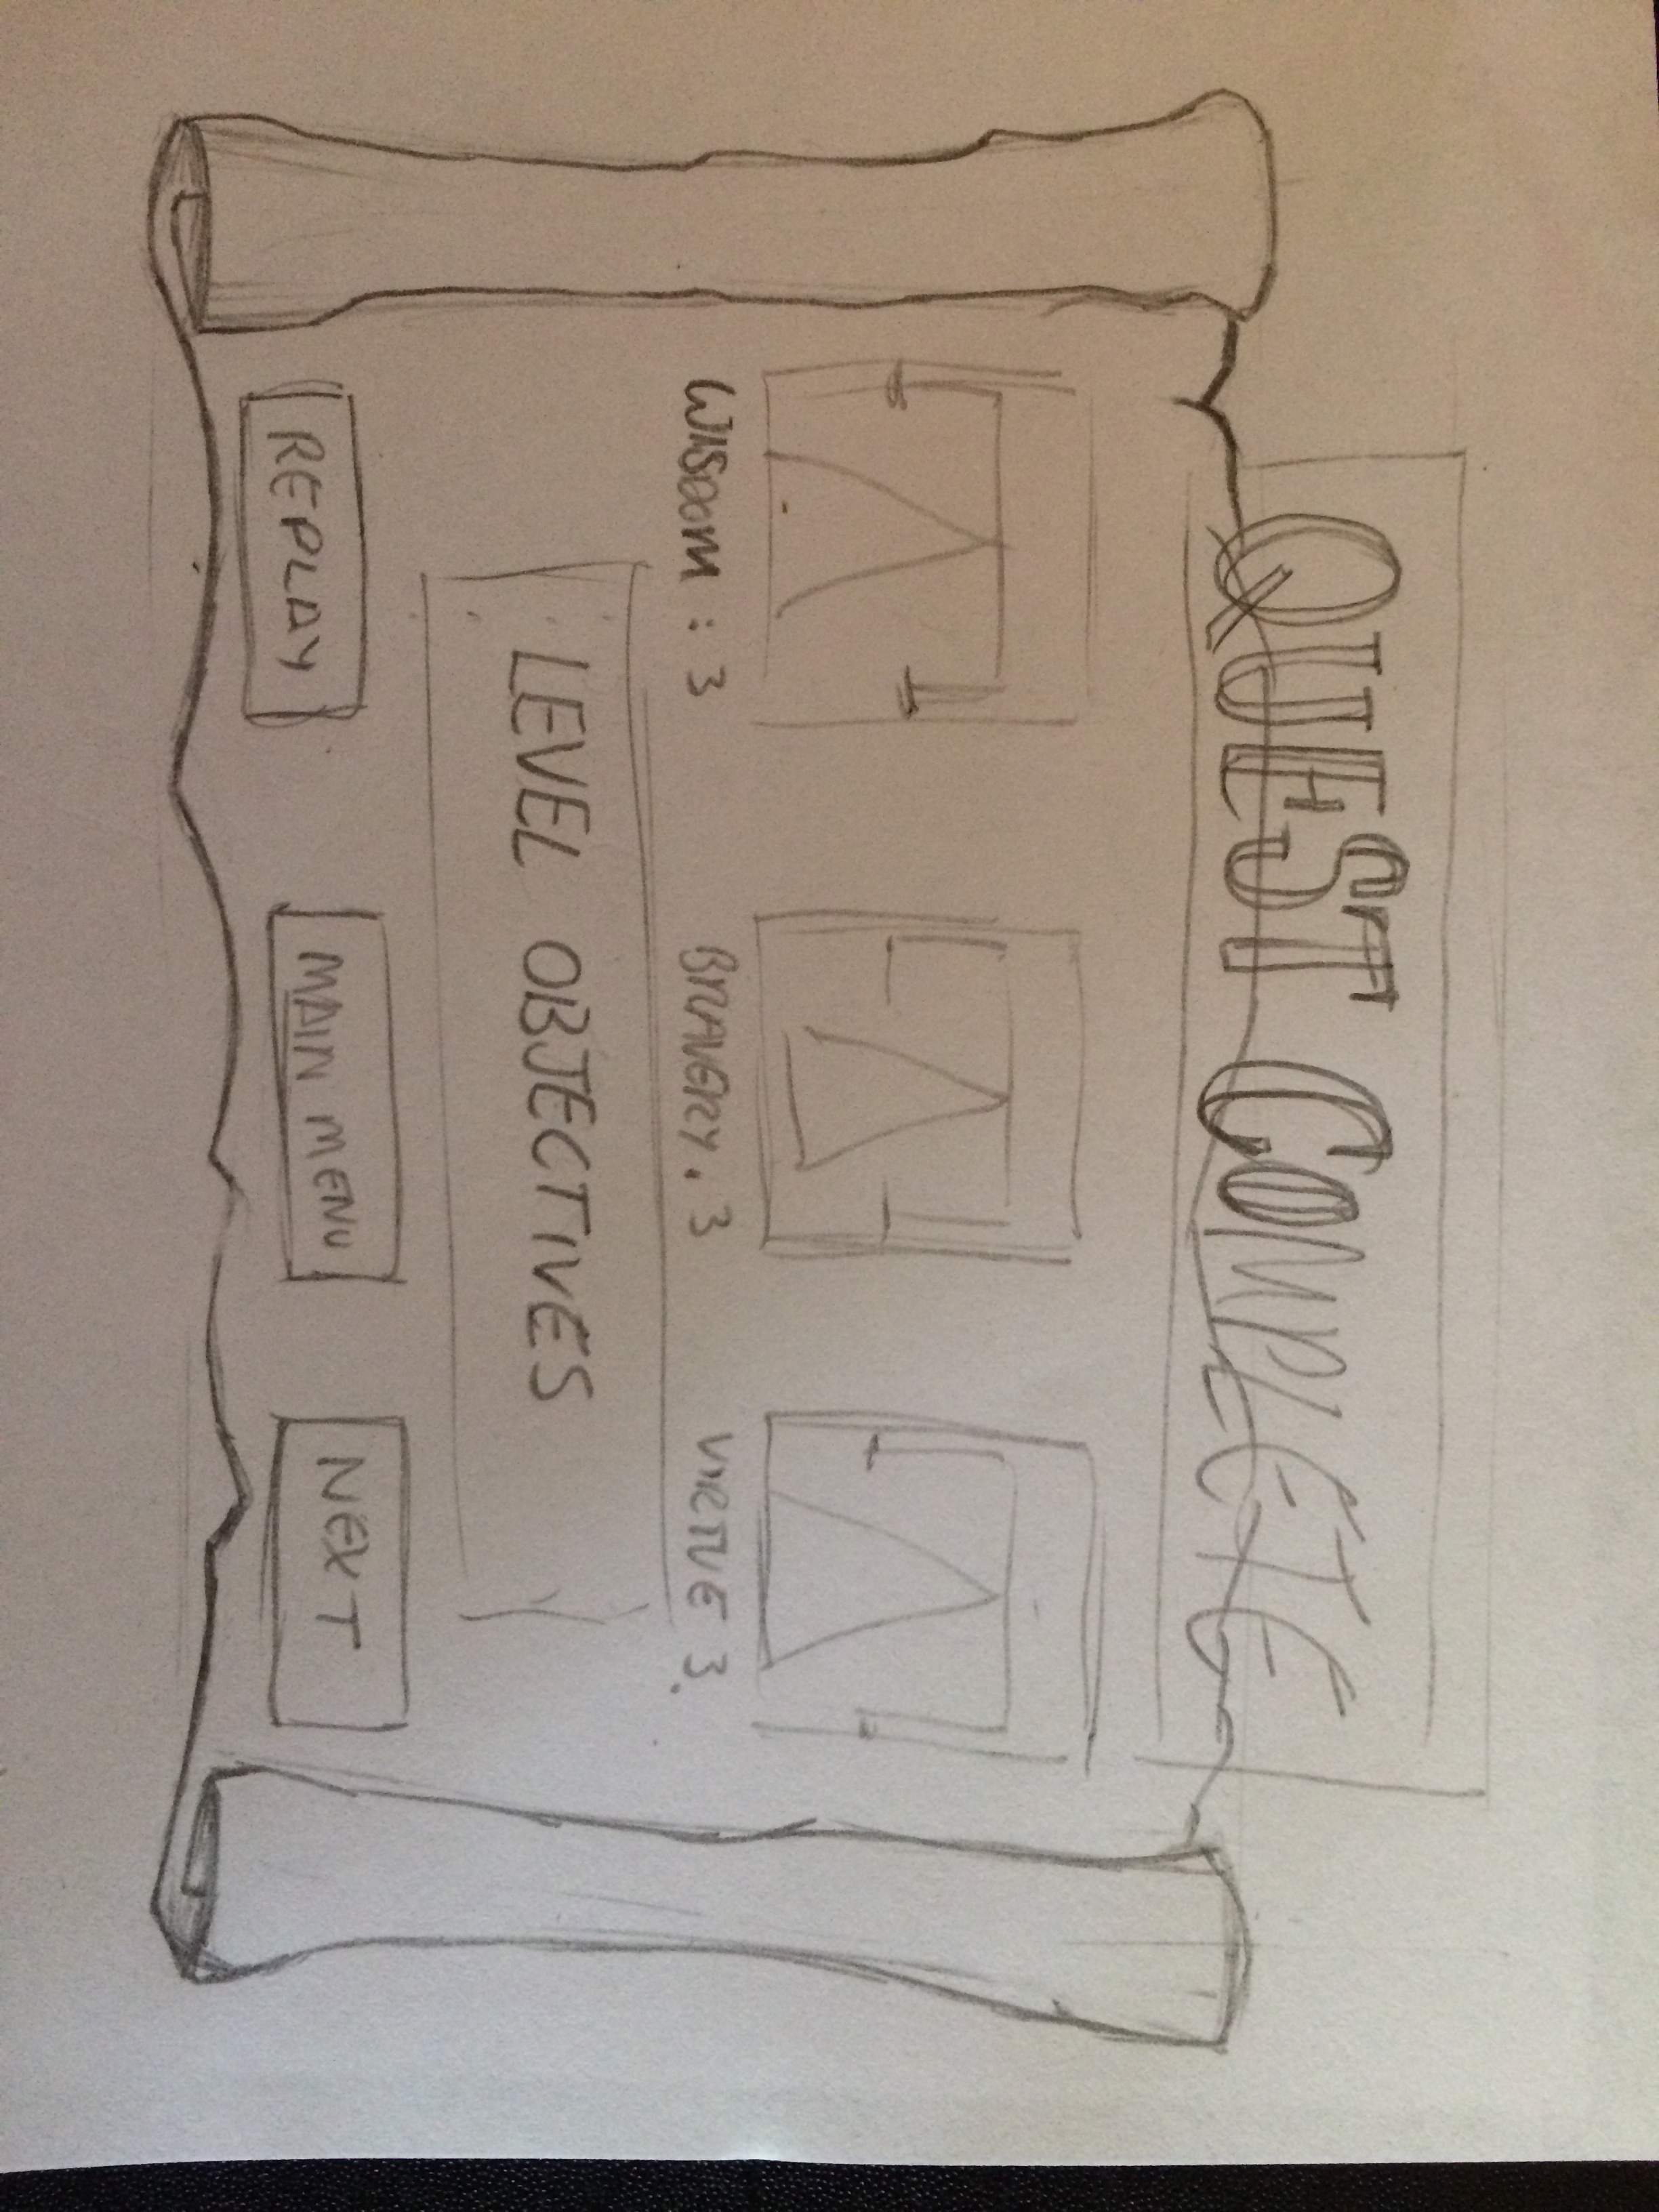 QUEST COMPLETE
WISDOM : 3
BRAVERY . 3
VIRTUE 3.
LEVEL OBJECTIVES
REPLAY
MAIN MENU
NEXT